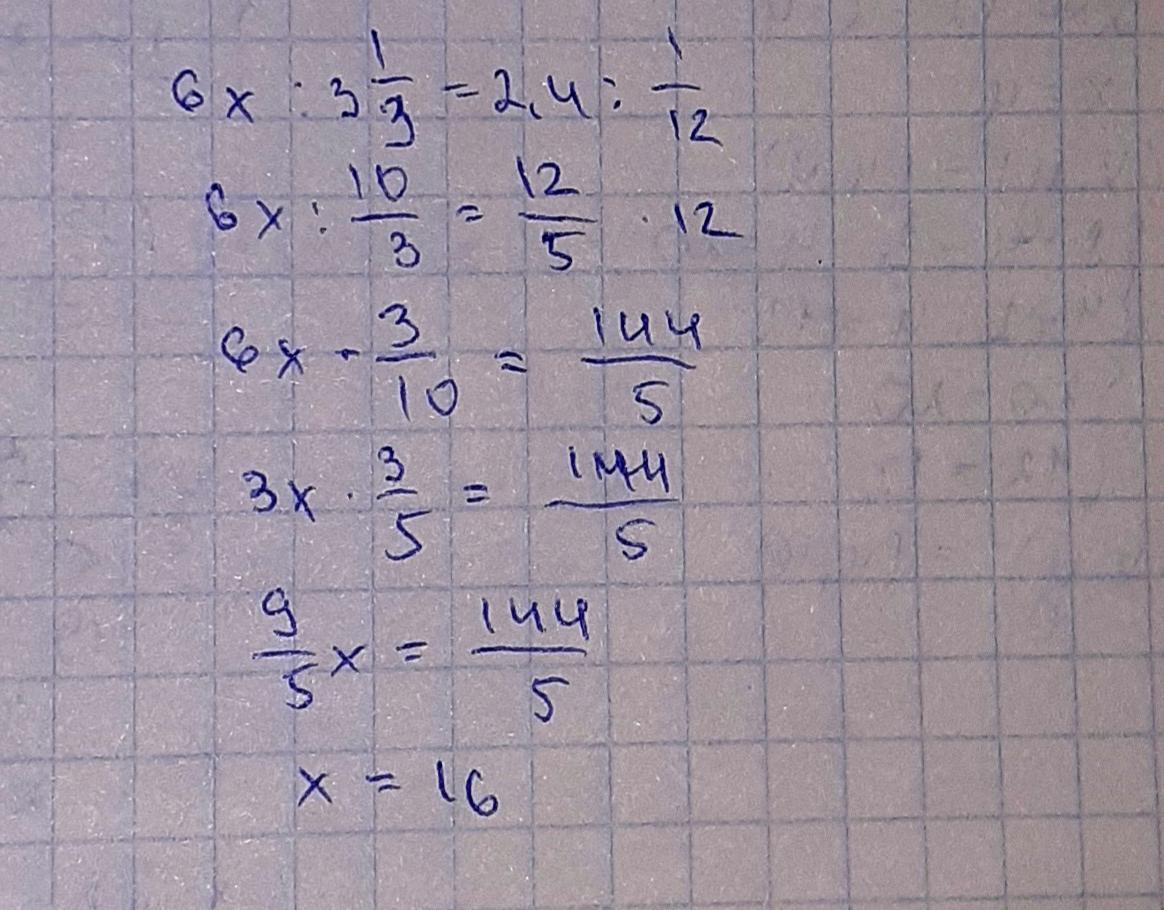 6x : 3 1/3 = 2,4 : 1/12
6x : 10/3 = 12/5 · 12
6x · 3/10 = 144/5
3x · 3/5 = 144/5
9/5 x = 144/5
x = 16